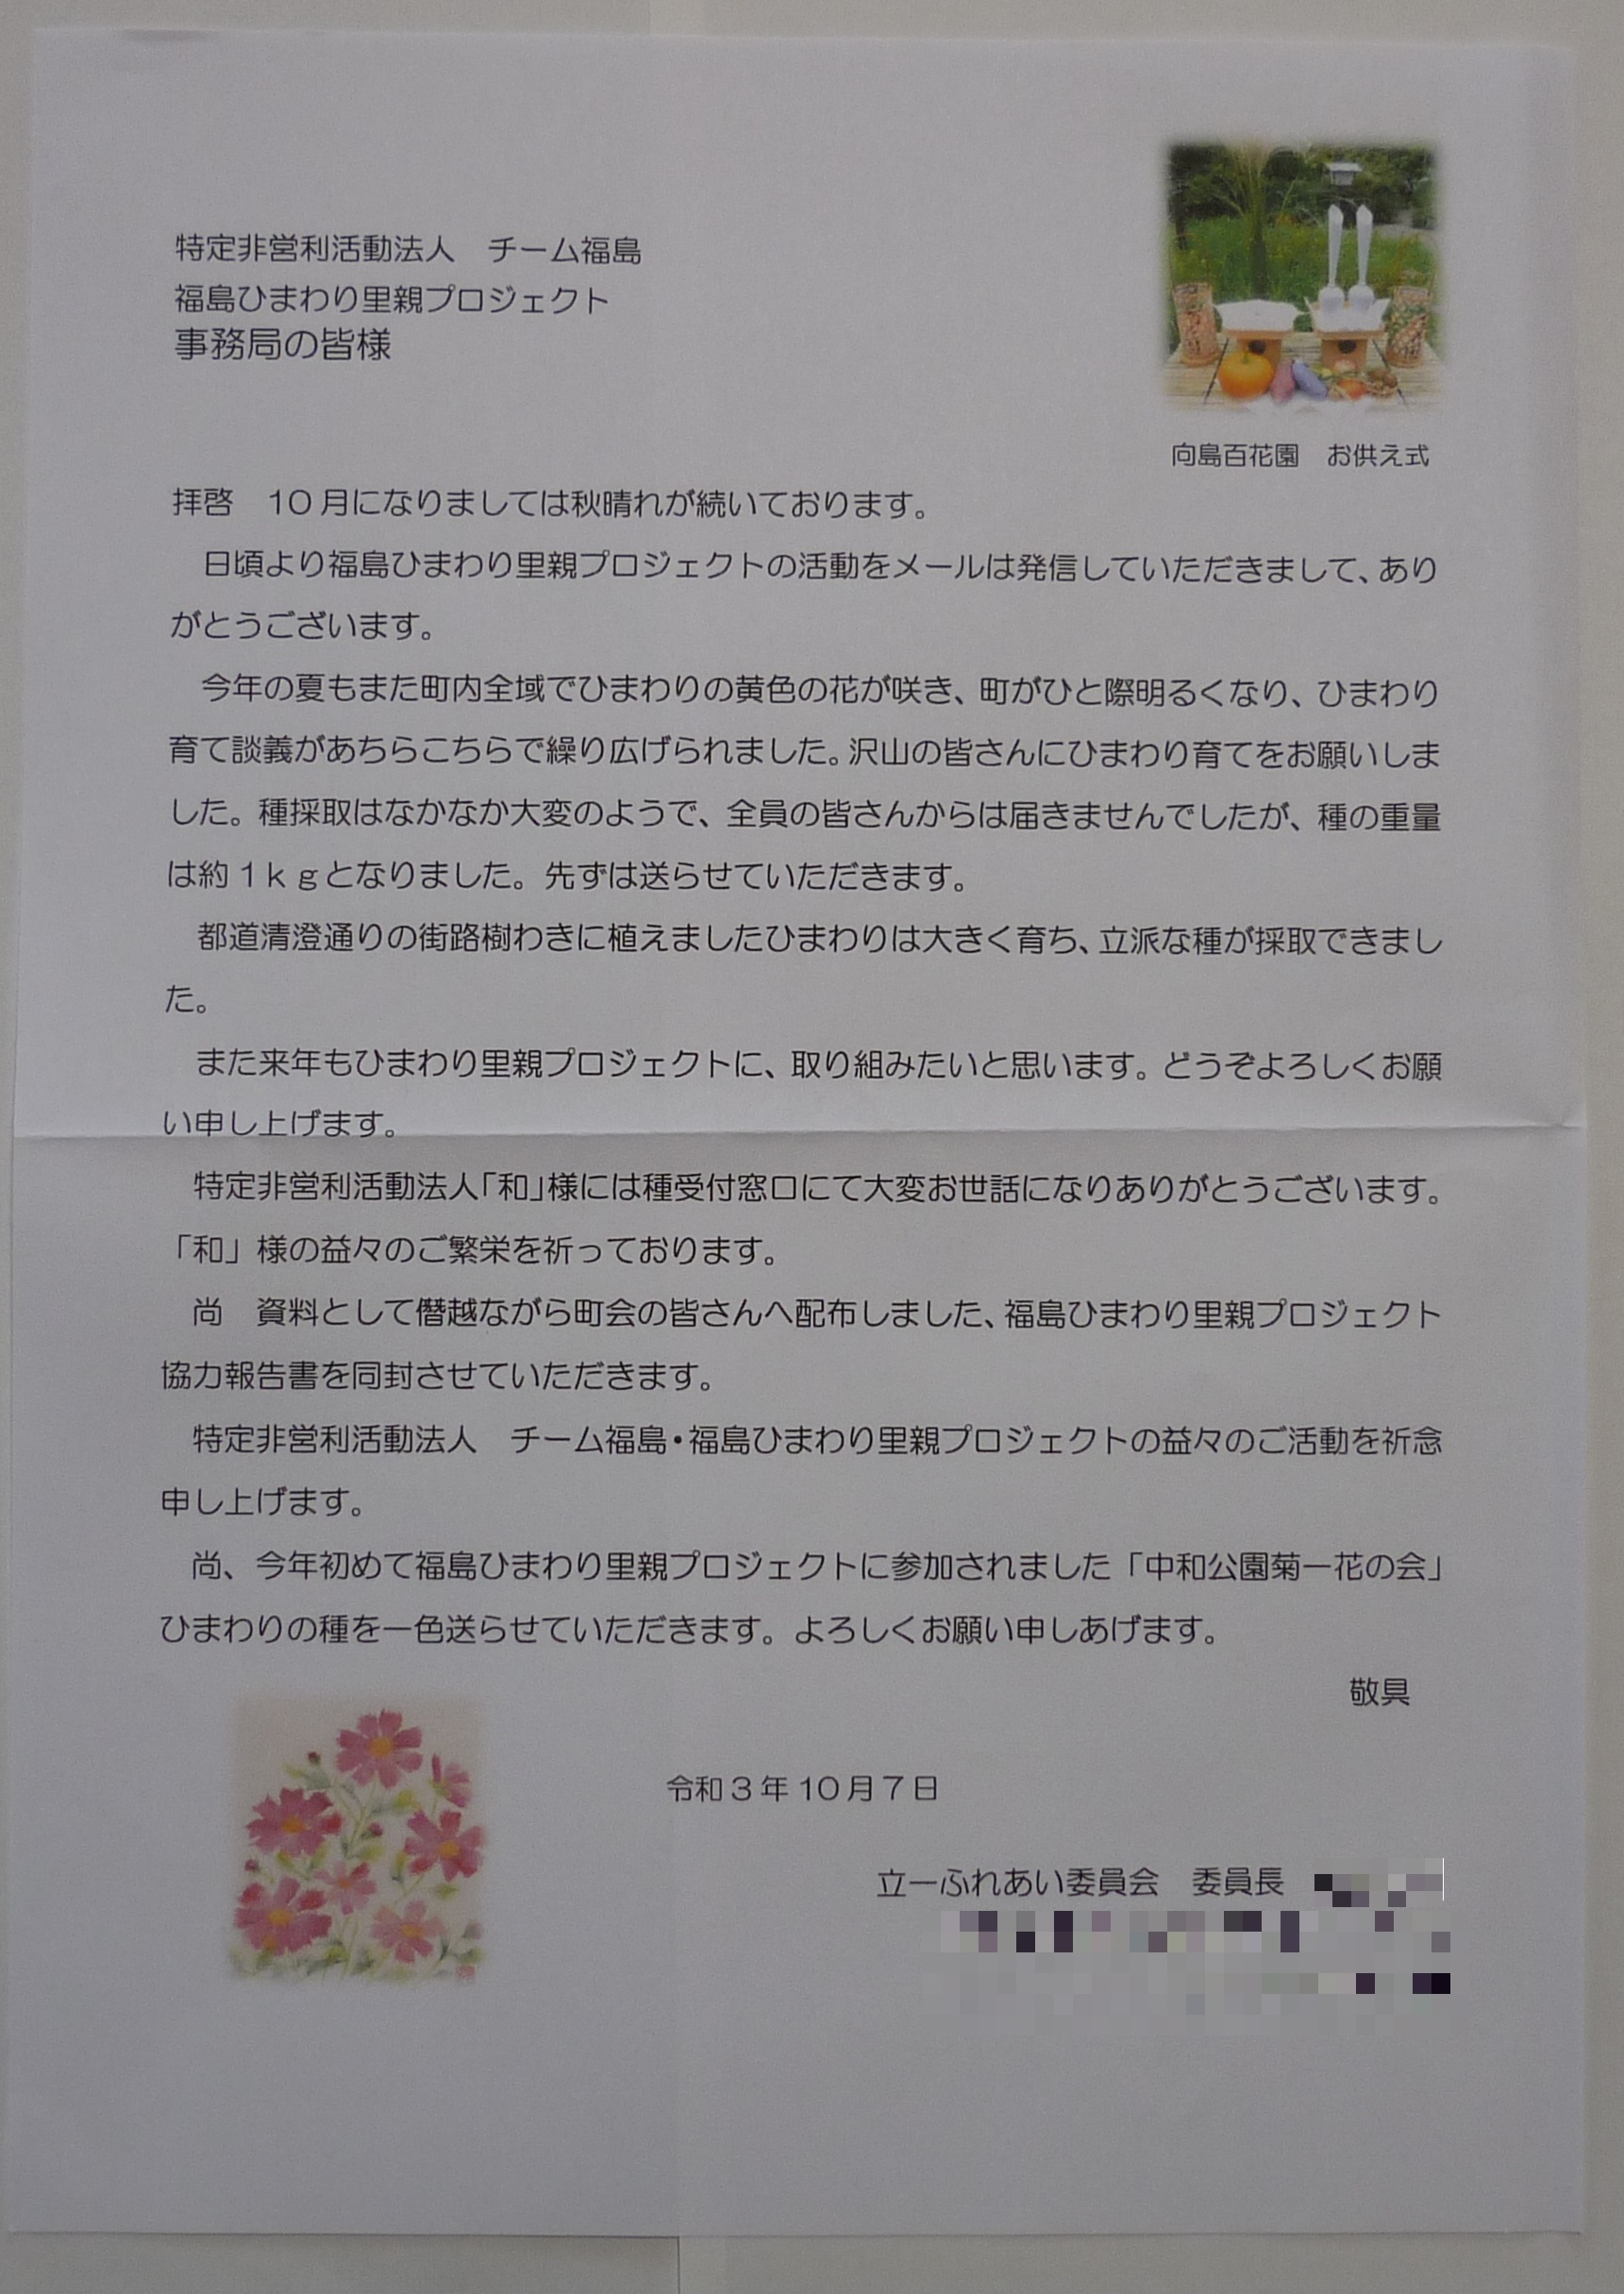 特定非営利活動法人　チーム福島
福島ひまわり里親プロジェクト
事務局の皆様
向島百花園　お供え式
拝啓　10月になりましては秋晴れが続いております。
　日頃より福島ひまわり里親プロジェクトの活動をメールは発信していただきまして、あり
がとうございます。
　今年の夏もまた町内全域でひまわりの黄色の花が咲き、町がひと際明るくなり、ひまわり
育て談義があちらこちらで繰り広げられました。沢山の皆さんにひまわり育てをお願いしま
した。種採取はなかなか大変のようで、全員の皆さんからは届きませんでしたが、種の重量
は約１ｋｇとなりました。先ずは送らせていただきます。
　都道清澄通りの街路樹わきに植えましたひまわりは大きく育ち、立派な種が採取できまし
た。
　また来年もひまわり里親プロジェクトに、取り組みたいと思います。どうぞよろしくお願
い申し上げます。
　特定非営利活動法人「和」様には種受付窓口にて大変お世話になりありがとうございます。
「和」様の益々のご繁栄を祈っております。
　尚　資料として僭越ながら町会の皆さんへ配布しました、福島ひまわり里親プロジェクト
協力報告書を同封させていただきます。
　特定非営利活動法人　チーム福島・福島ひまわり里親プロジェクトの益々のご活動を祈念
申し上げます。
　尚、今年初めて福島ひまわり里親プロジェクトに参加されました「中和公園菊一花の会」
ひまわりの種を一色送らせていただきます。よろしくお願い申しあげます。
敬具
令和３年10月７日
立一ふれあい委員会　委員長